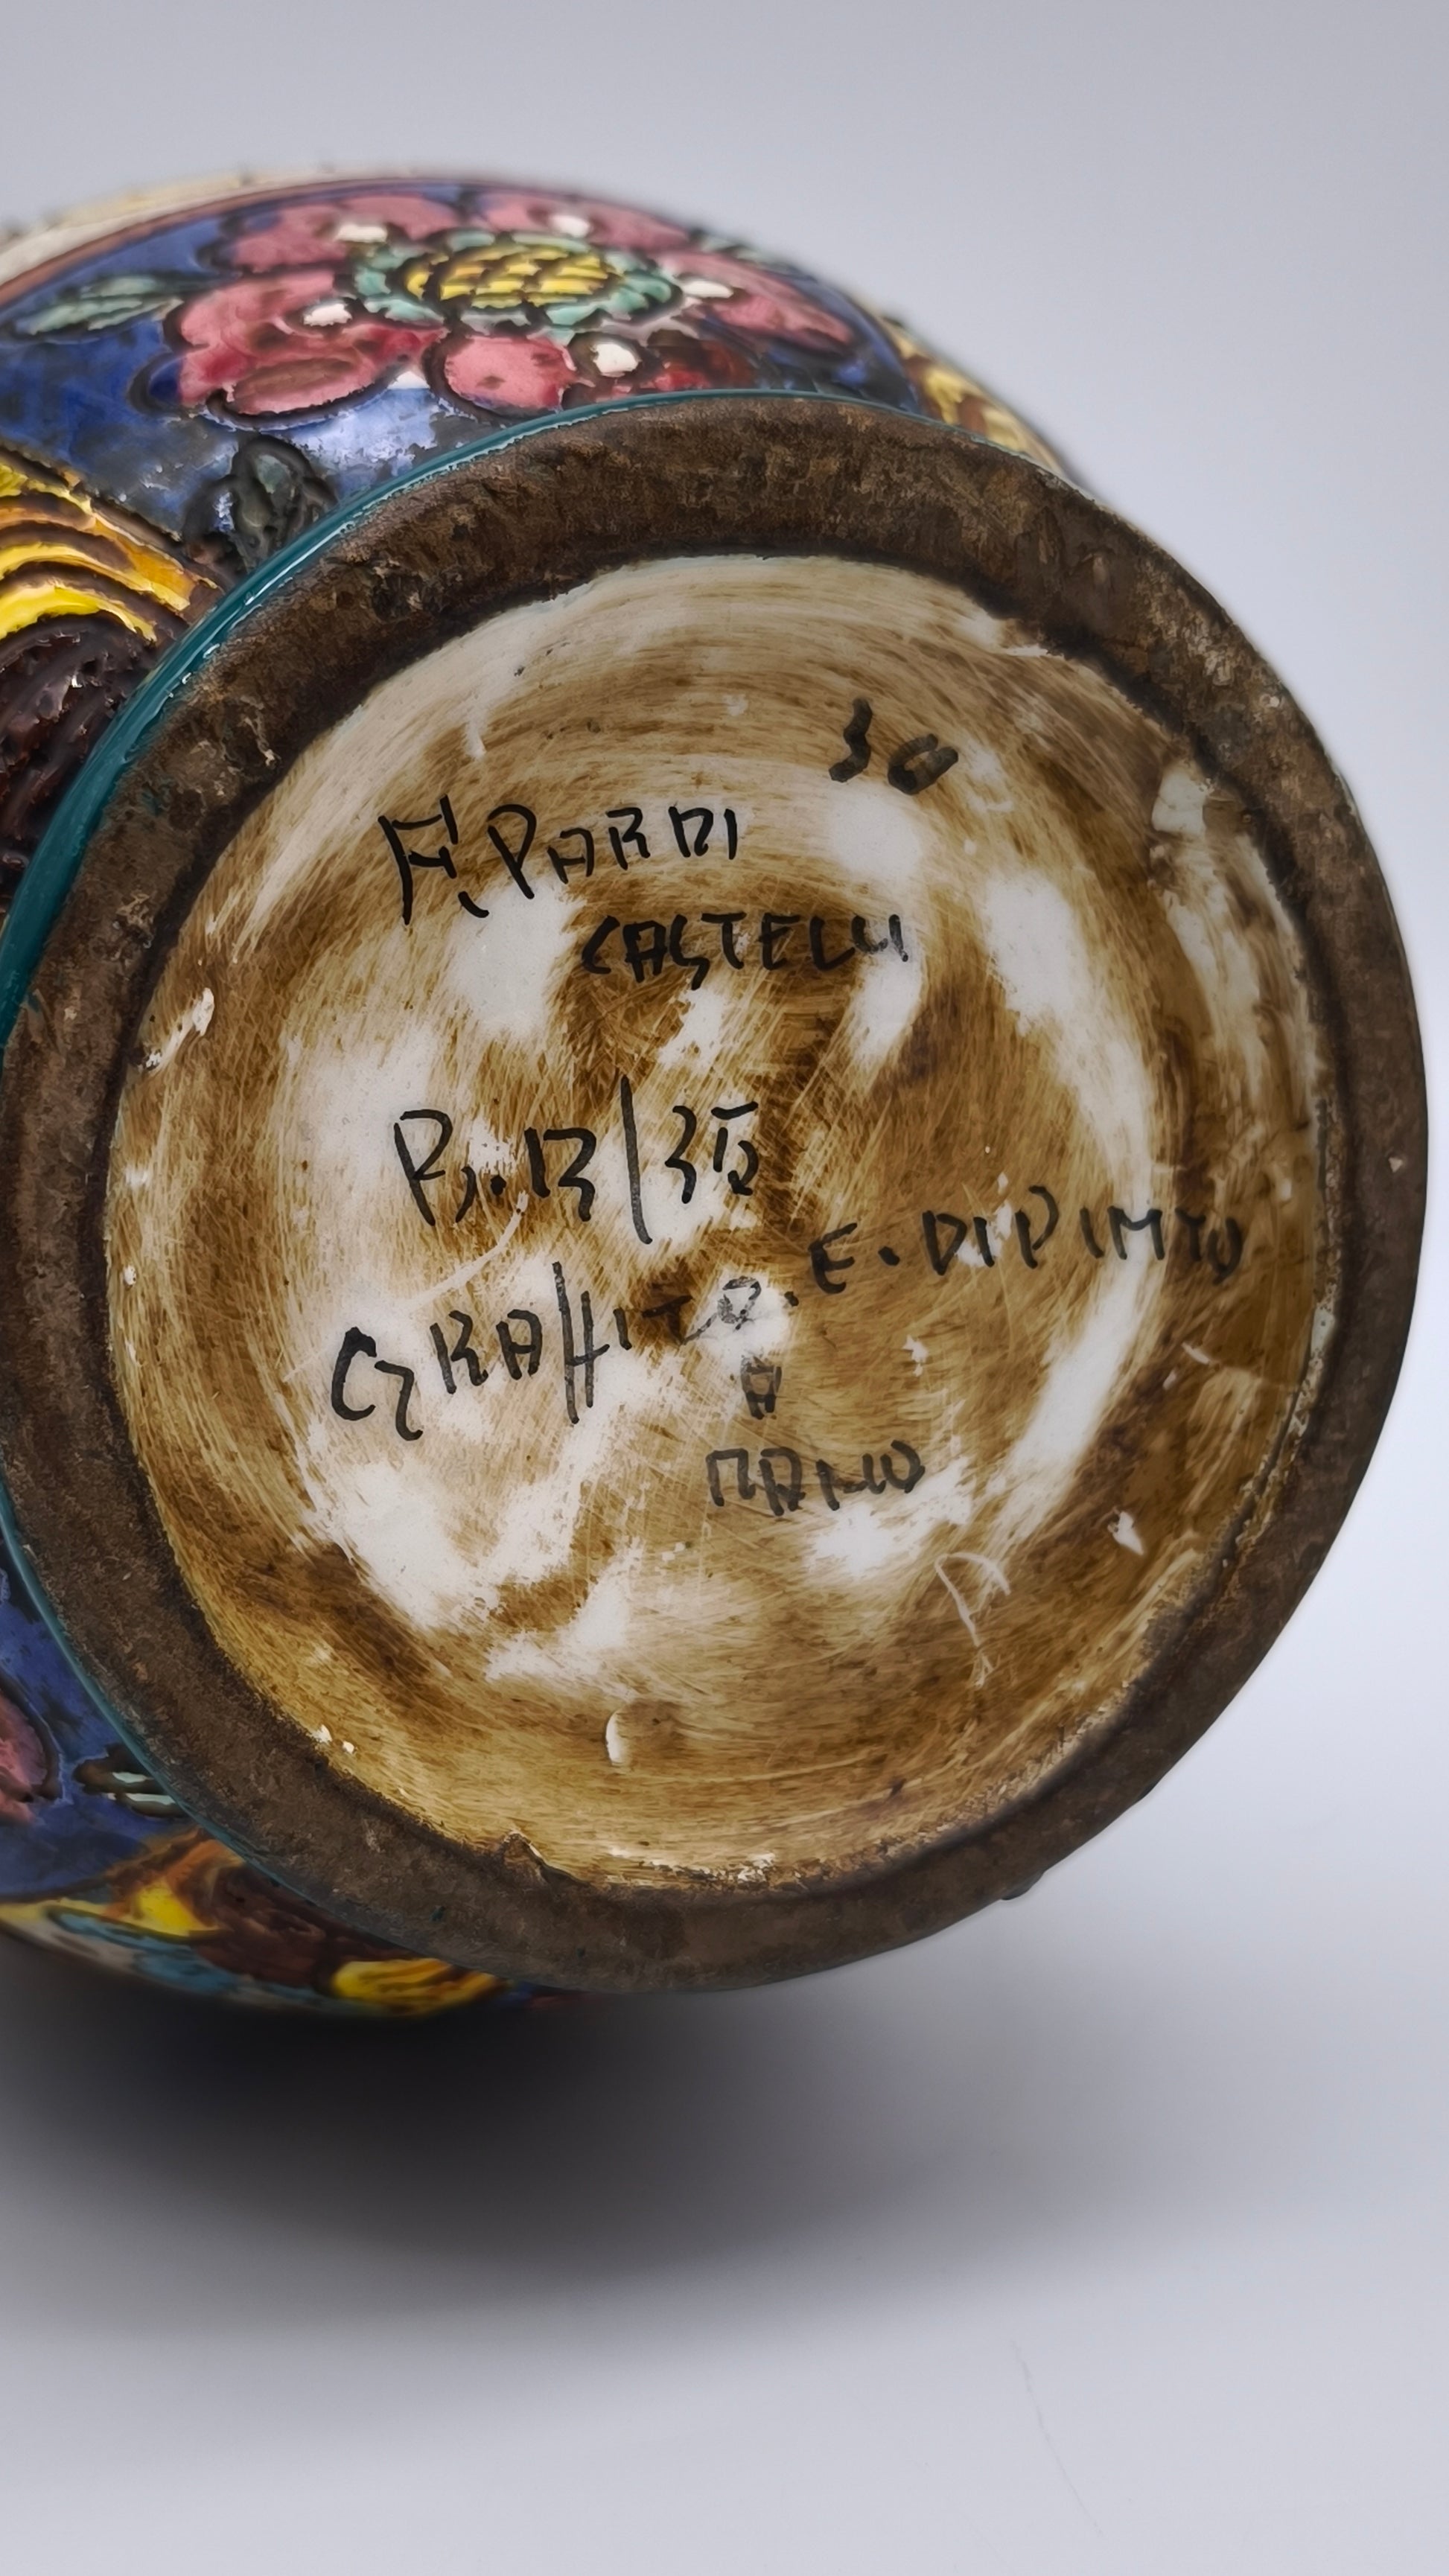 30
F. PARDI
CASTELLI
B.13/35
GRAFFITO. E. DIPINTO
A
MANO